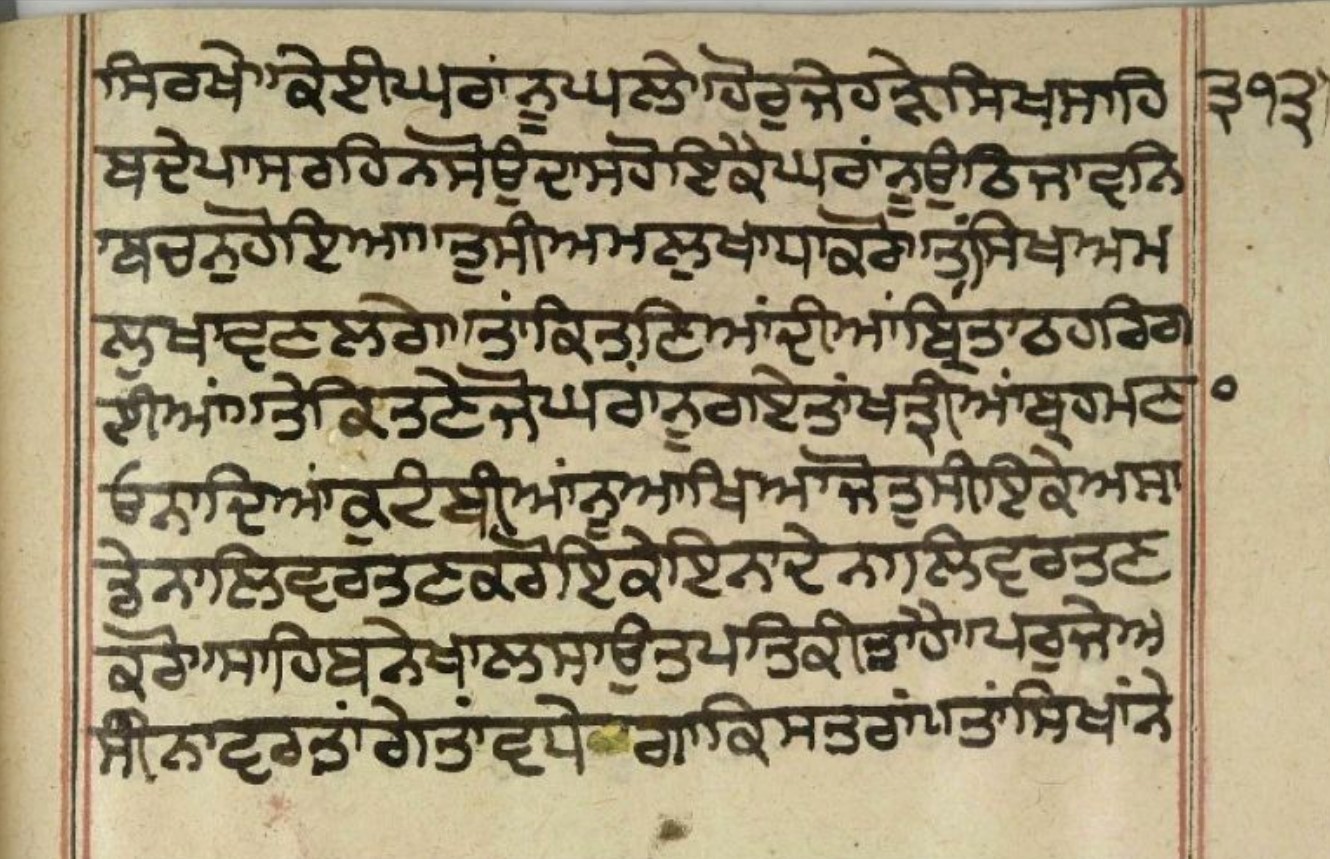 ਸਿਰਖੋ।ਕੇਈਘਰਾਂਨੂਘਲੇ।ਹੋਰੁਜੇਹੜੇਸਿਖਸਾਹਿ ੩੧੩
ਬਦੇਪਾਸਰਹਿਨਸੋਉਦਾਸਹੋਇਕੈਘਰਾਂਨੂਉਠਿਜਾਵਨਿ
ਬਚਨੁਹੋਇਆ।ਤੁਸੀਅਮਲੁਖਾਯਾਕਰੋ।ਤਾਂਸਿਖਅਮ
ਲੁਖਾਵਣਲਗੇ।ਤਾਂਕਿਤਣਿਆਂਦੀਆਂਬ੍ਰਿਤਾਠਹਰਿਗ
ਈਆਂ।ਤੇਕਿਤਣੇਜੋਘਰਾਂਨੂਗਏਤਾਂਖਤ੍ਰੀਆਂਬ੍ਰਹਮਣ
ਓਨਾਦਿਆਂਕੁਟੰਬੀਆਂਨੂਆਖਿਆਜੋਤੁਸੀਇਕੇਅਸਾ
ਡੇਨਾਲਿਵਰਤਣਕਰੋਇਕੇਇਨਾਦੇਨਾਲਿਵਰਤਣ
ਕਰੋ।ਸਾਹਿਬਨੇਖਾਲਸਾਉਤਪਤਿਕੀਤਾਹੈ।ਪਰੁਜੇਅ
ਸੀਨਾਵਰਤਾਂਗੇਤਾਂਵਧੇਗਾਕਿਸਤਰਾਂ।ਤਾਂਸਿਖਾਂਨੇ